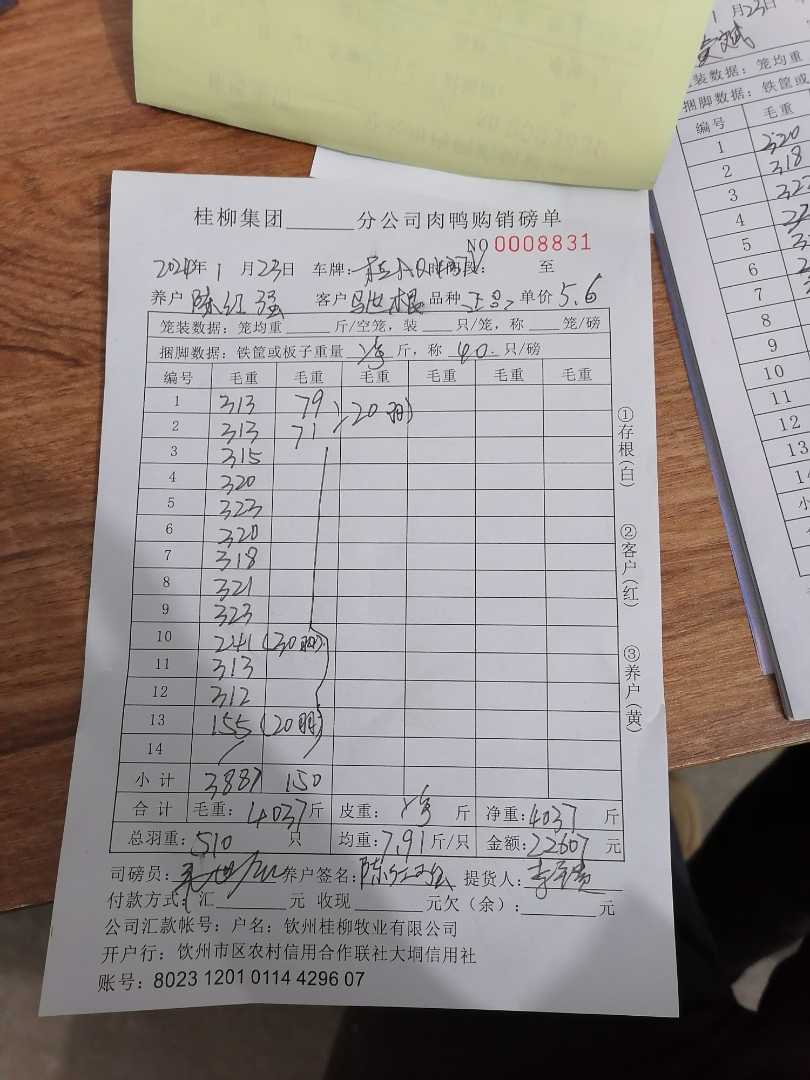 桂柳集团______分公司肉鸭购销磅单
NO 0008831
2024年 1 月23日 车牌: 时间段: 至
养户 陈红强 客户 根 品种 单价 5.6
笼装数据: 笼均重_____斤/空笼, 装____只/笼, 称____笼/磅
捆脚数据: 铁筐或板子重量 净 斤, 称 40 只/磅
编号 毛重 毛重 毛重 毛重 毛重 毛重
1 313 79 (20羽)
2 313 71
3 315
4 320
5 323
6 320
7 318
8 321
9 323
10 241 (30羽)
11 313
12 312
13 155 (20羽)
14
小计 3887 150
合计 毛重: 4037斤 皮重: 净 斤 净重: 4037 斤
总羽重: 510 只 均重: 7.91斤/只 金额: 22607 元
司磅员: 养户签名: 陈红强 提货人:
付款方式: 汇______元 收现______元欠(余):______元
公司汇款帐号: 户名: 钦州桂柳牧业有限公司
开户行: 钦州市区农村信用合作联社大垌信用社
账号: 8023 1201 0114 4296 07
①存根(白)
②客户(红)
③养户(黄)
1月23日
装数据: 笼均重
捆脚数据: 铁筐或
编号 毛重
1 320
2 318
3
4
5
6
7
8
9
10
11
12
13
14
小